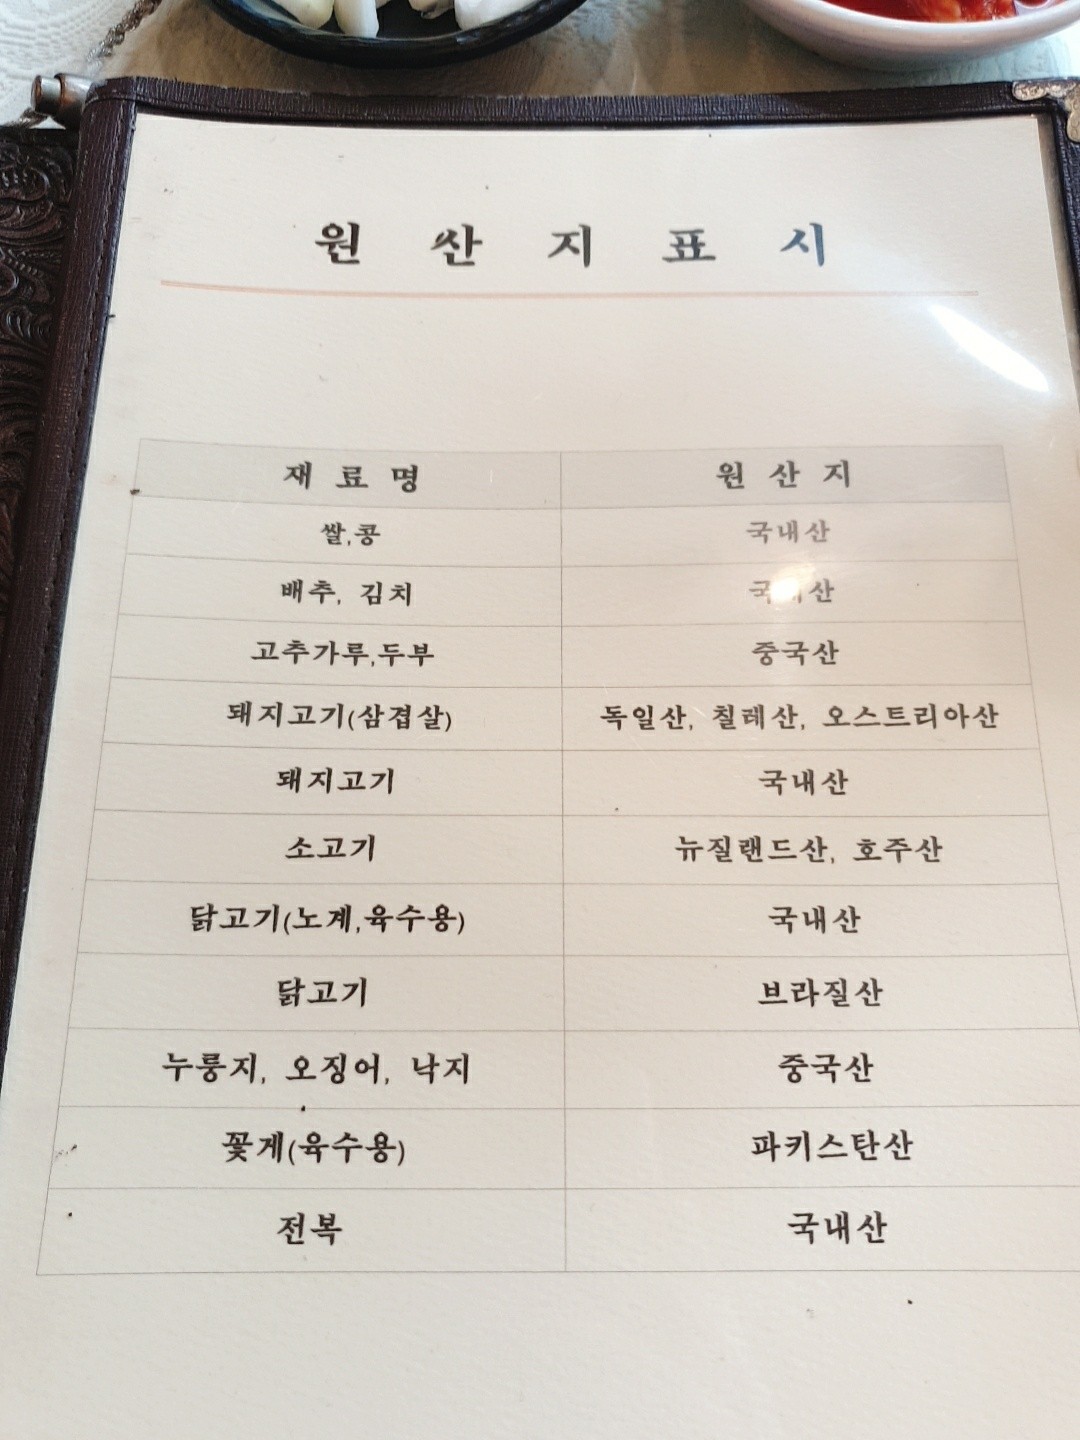 원산지표시
재료명 원산지
쌀,콩 국내산
배추, 김치 국내산
고추가루,두부 중국산
돼지고기(삼겹살) 독일산, 칠레산, 오스트리아산
돼지고기 국내산
소고기 뉴질랜드산, 호주산
닭고기(노계,육수용) 국내산
닭고기 브라질산
누룽지, 오징어, 낙지 중국산
꽃게(육수용) 파키스탄산
전복 국내산